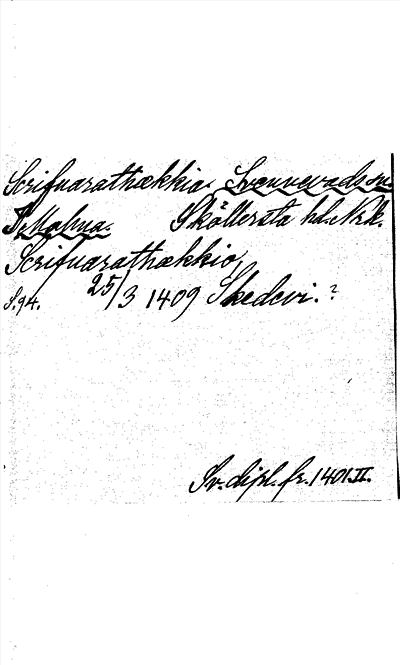 Scrifuarathækkia. Svennevads sn.
T, Malma. Sköllersta hd. Nrk.
Scrifuarathækkio,
S. 94. 25/3 1409 Skedevi. ?
Sv. dipl. fr. 1401. II.